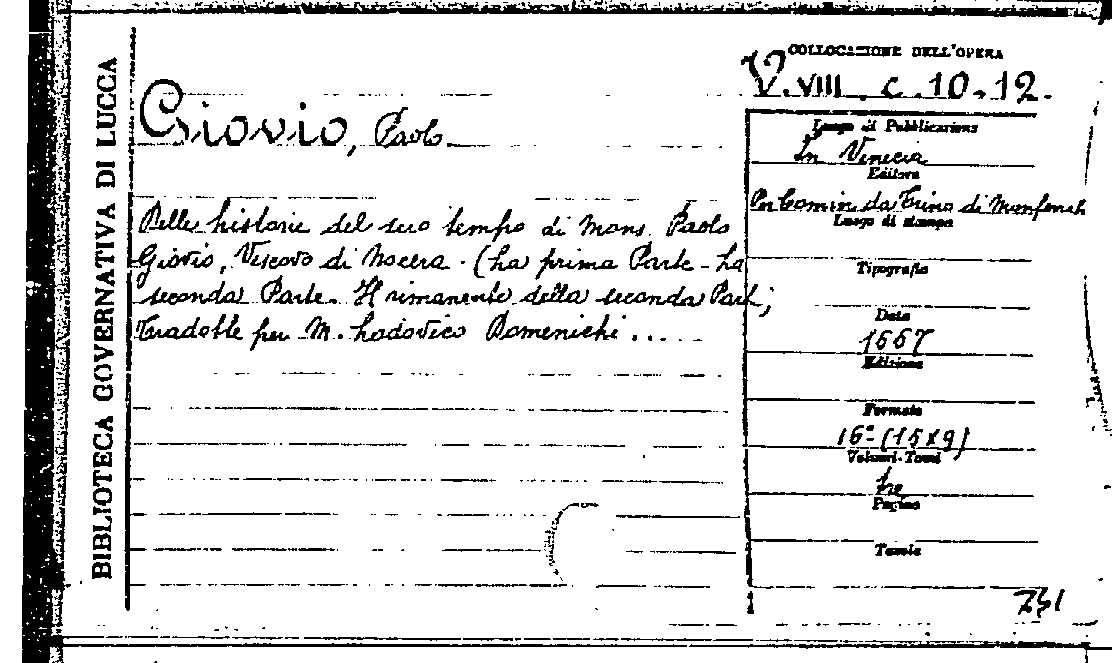 BIBLIOTECA GOVERNATIVA DI LUCCA
COLLOCAZIONE DELL'OPERA
V. VIII. c. 10-12.
Giovio, Paolo.
Delle historie del suo tempo di Mons. Paolo
Giovio, Vescovo di Nocera. (La prima Parte - La
seconda Parte. Il rimanente della seconda Parte;
Tradotte per M. Lodovico Domenichi ...
Luogo di Pubblicazione
In Venecia
Editore
Per Comin da Trino di Monferrato
Luogo di stampa
Tipografia
Data
1557
Edizione
Formato
16º (15x9)
Volumi-Tomi
tre
Pagine
Tavole